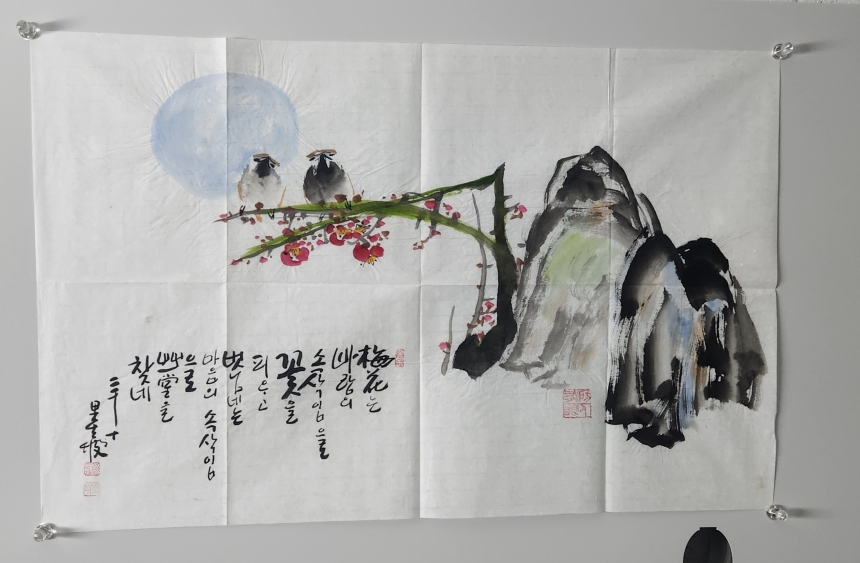 梅花는
바람의
속삭임을
꽃을
피우고
벗님네는
마음의 속삭임
을
艸堂을
찾네